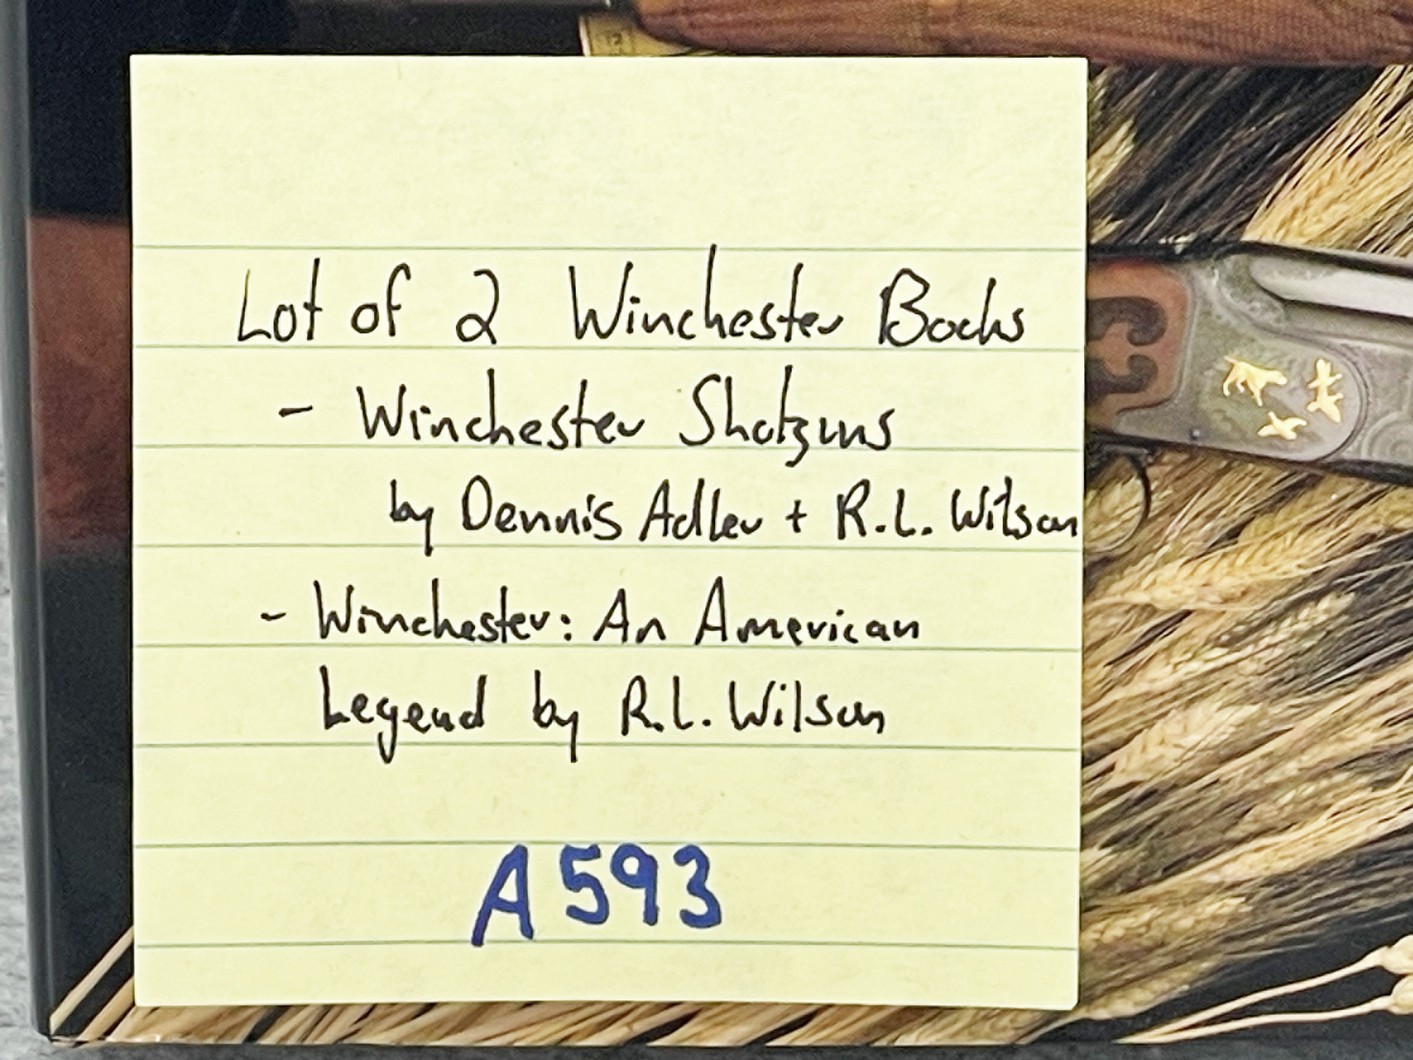 Lot of 2 Winchester Books
- Winchester Shotguns
by Dennis Adler + R.L. Wilson
- Winchester: An American
Legend by R.L. Wilson
A593